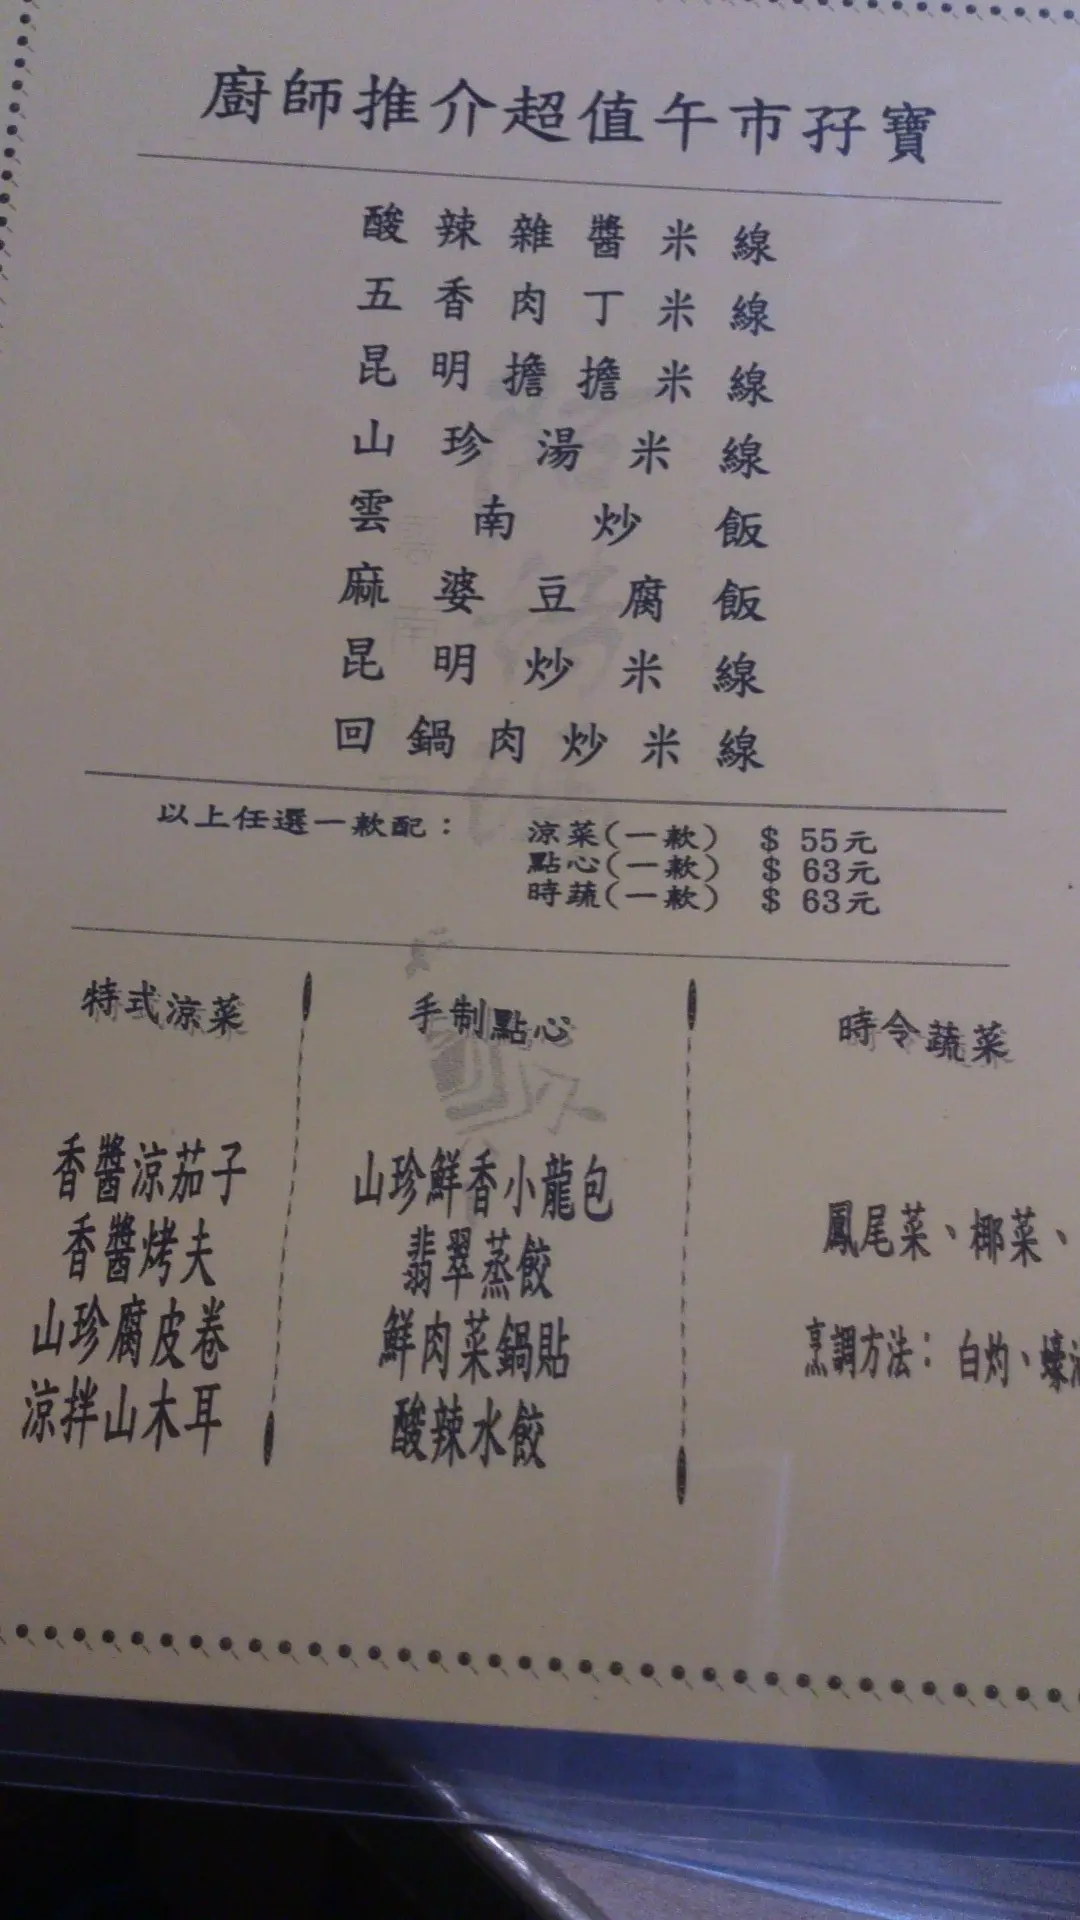 廚師推介超值午市孖寶
酸辣雜醬米線
五香肉丁米線
昆明擔擔米線
山珍湯米線
雲南炒飯
麻婆豆腐飯
昆明炒米線
回鍋肉炒米線
以上任選一款配：
涼菜(一款) $ 55元
點心(一款) $ 63元
時蔬(一款) $ 63元
特式涼菜
香醬涼茄子
香醬烤夫
山珍腐皮卷
涼拌山木耳
手制點心
山珍鮮香小龍包
翡翠蒸餃
鮮肉菜鍋貼
酸辣水餃
時令蔬菜
鳳尾菜、椰菜、
烹調方法：白灼、蠔